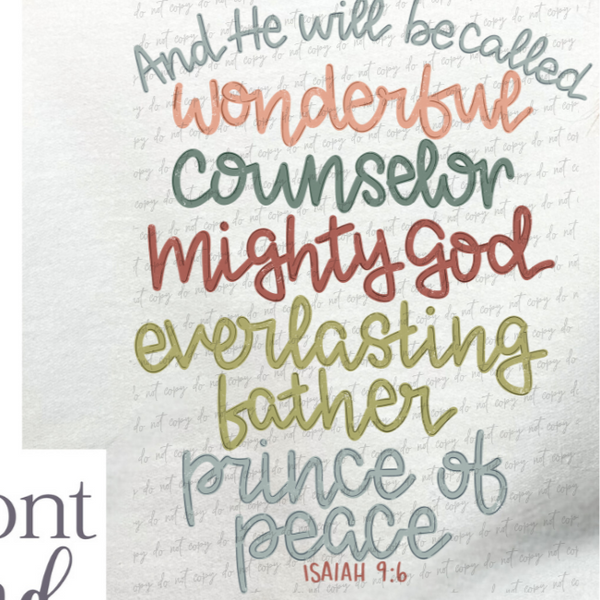 And He will be called
wonderful
counselor
mighty God
everlasting
father
prince of
peace
ISAIAH 9:6
do not copy do not copy do not copy
ont
nd